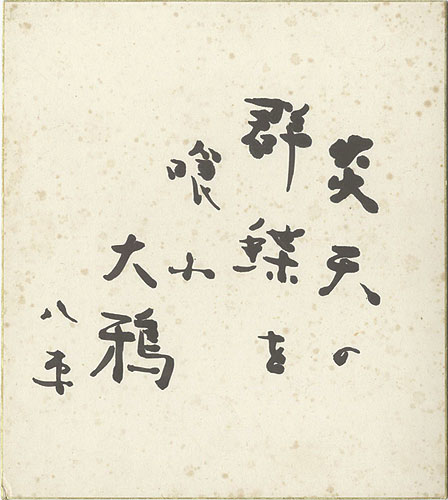 炎天の
群蝶を
喰ふ
大鴉
八束